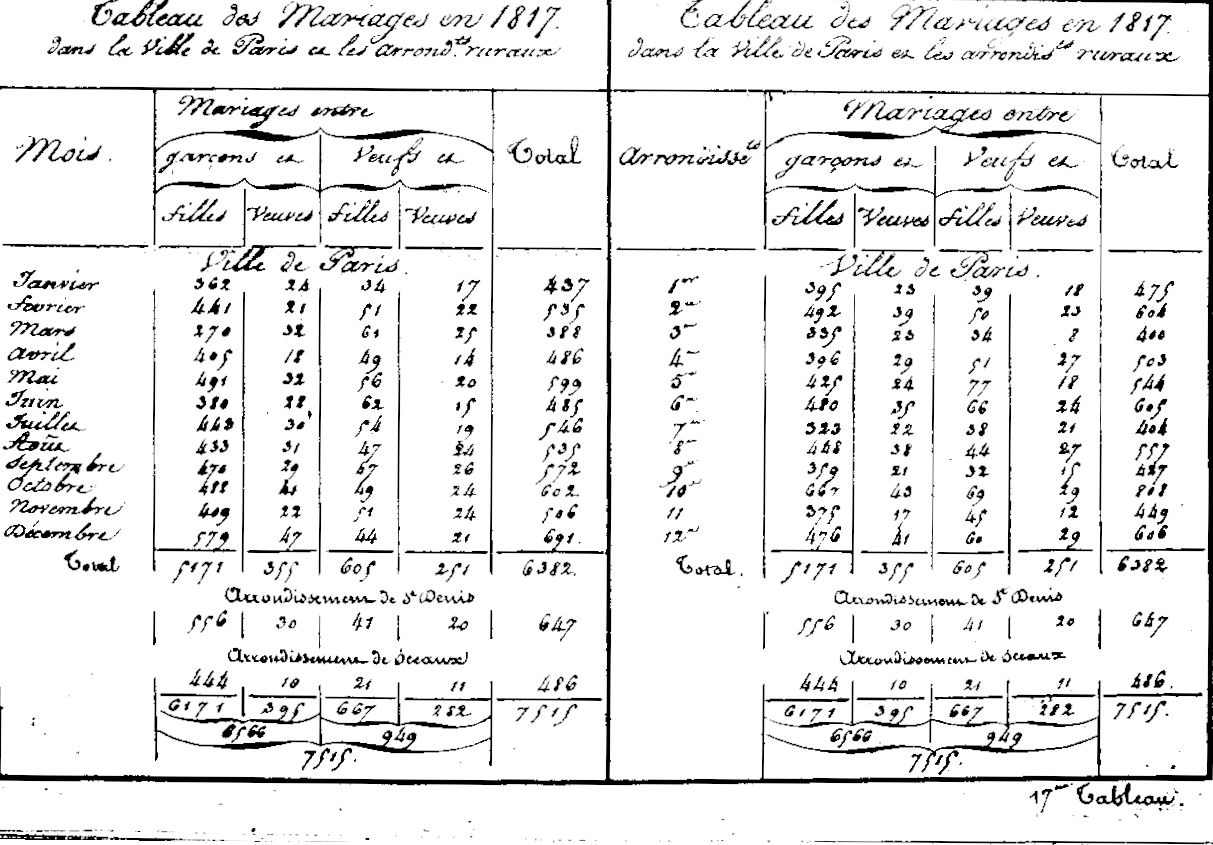 Tableau des Mariages en 1817.
dans la Ville de Paris et les arrond.ts ruraux
Mariages entre
Mois. garçons et Veufs et Total
filles Veuves filles Veuves
Ville de Paris.
Janvier 362 24 34 17 437
fevrier 441 21 51 22 535
Mars 270 32 61 25 388
avril 405 18 49 14 486
Mai 491 32 56 20 599
Juin 380 28 62 15 485
Juillet 443 30 54 19 546
Août 433 31 47 24 535
Septembre 470 29 47 26 572
Octobre 488 41 49 24 602
Novembre 409 22 51 24 506
Décembre 579 47 44 21 691.
Total 5171 355 605 251 6382.
Arrondissement de St Denis
556 30 41 20 647
Arrondissement de Sceaux
444 10 21 11 486
6171 395 667 282 7515
6566 949
7515.
Tableau des Mariages en 1817.
dans la Ville de Paris et les arrondists ruraux
Mariages entre
Arrondissets garçons et Veufs et Total
filles Veuves filles Veuves
Ville de Paris.
1er 395 23 39 18 475
2me 492 39 50 23 604
3me 335 23 34 8 400
4me 396 29 51 27 503
5me 425 24 77 18 544
6me 480 35 66 24 605
7me 323 22 38 21 404
8me 448 38 44 27 557
9me 359 21 32 15 427
10me 667 43 69 29 808
11 375 17 45 12 449
12me 476 41 60 29 606
Total. 5171 355 605 251 6382
Arrondissement de St Denis
556 30 41 20 647
Arrondissement de Sceaux
444 10 21 11 486.
6171 395 667 282 7515.
6566 949
7515.
17me Tableau.